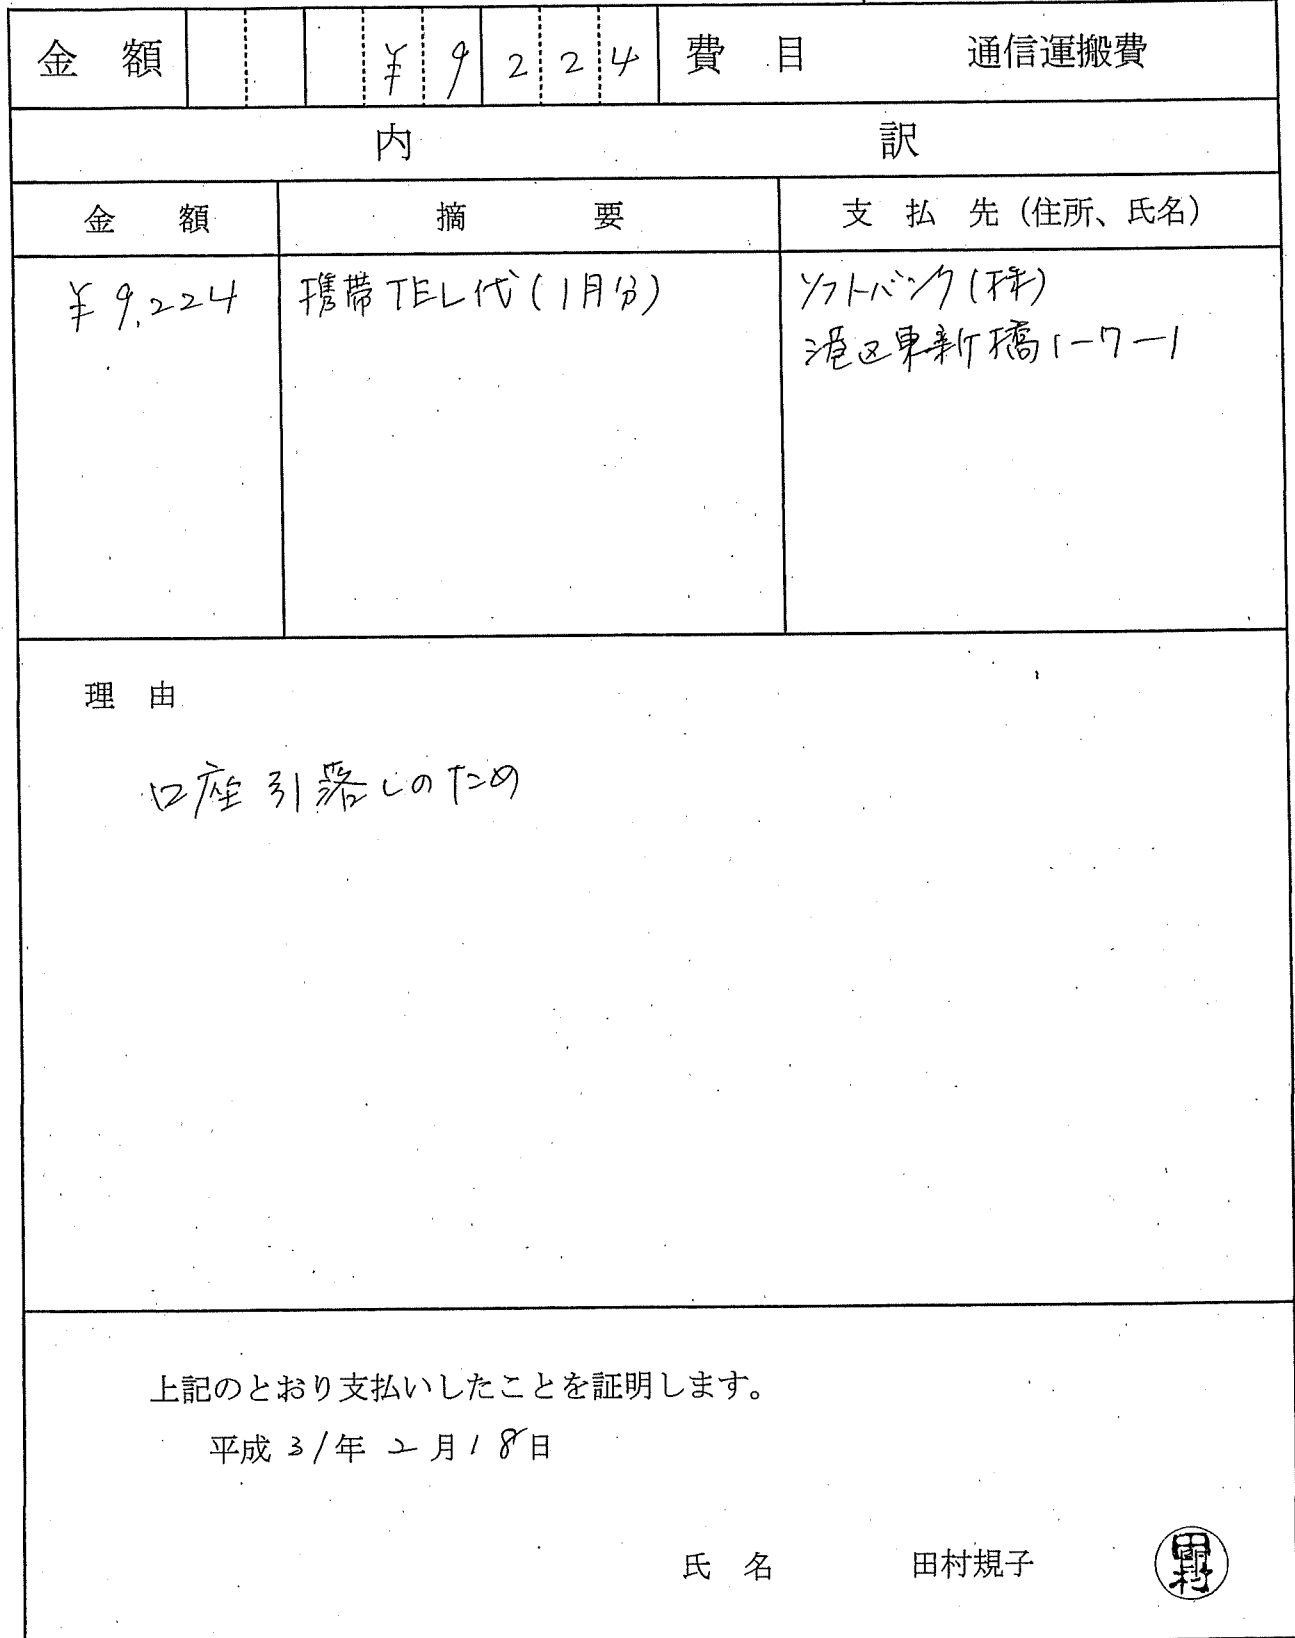 金額 ¥9224 費目 通信運搬費
内訳
金額 摘要 支払先（住所、氏名）
¥9,224 携帯TEL代(1月分) ソフトバンク(株)
港区東新橋1-7-1
理由
口座引落しのため
上記のとおり支払いしたことを証明します。
平成31年2月18日
氏名 田村規子 田村